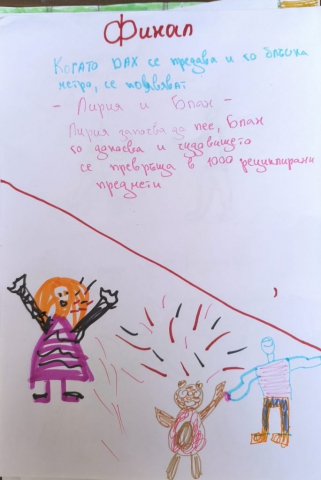 Финал
Когато Вах се предава и го блъска
метро, се появяват
- Лирия и Блан -
Лирия започва да пее, Блан
го докосва и чудовището
се превръща в 1000 рециклирани
предмети